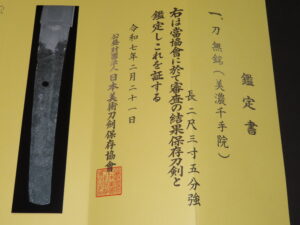 鑑定書
一、刀 無銘(美濃千手院)
長二尺三寸五分強
右は當協會に於て審査の結果保存刀剣と
鑑定しこれを証する
令和七年二月二十一日
公益財団法人日本美術刀剣保存協會